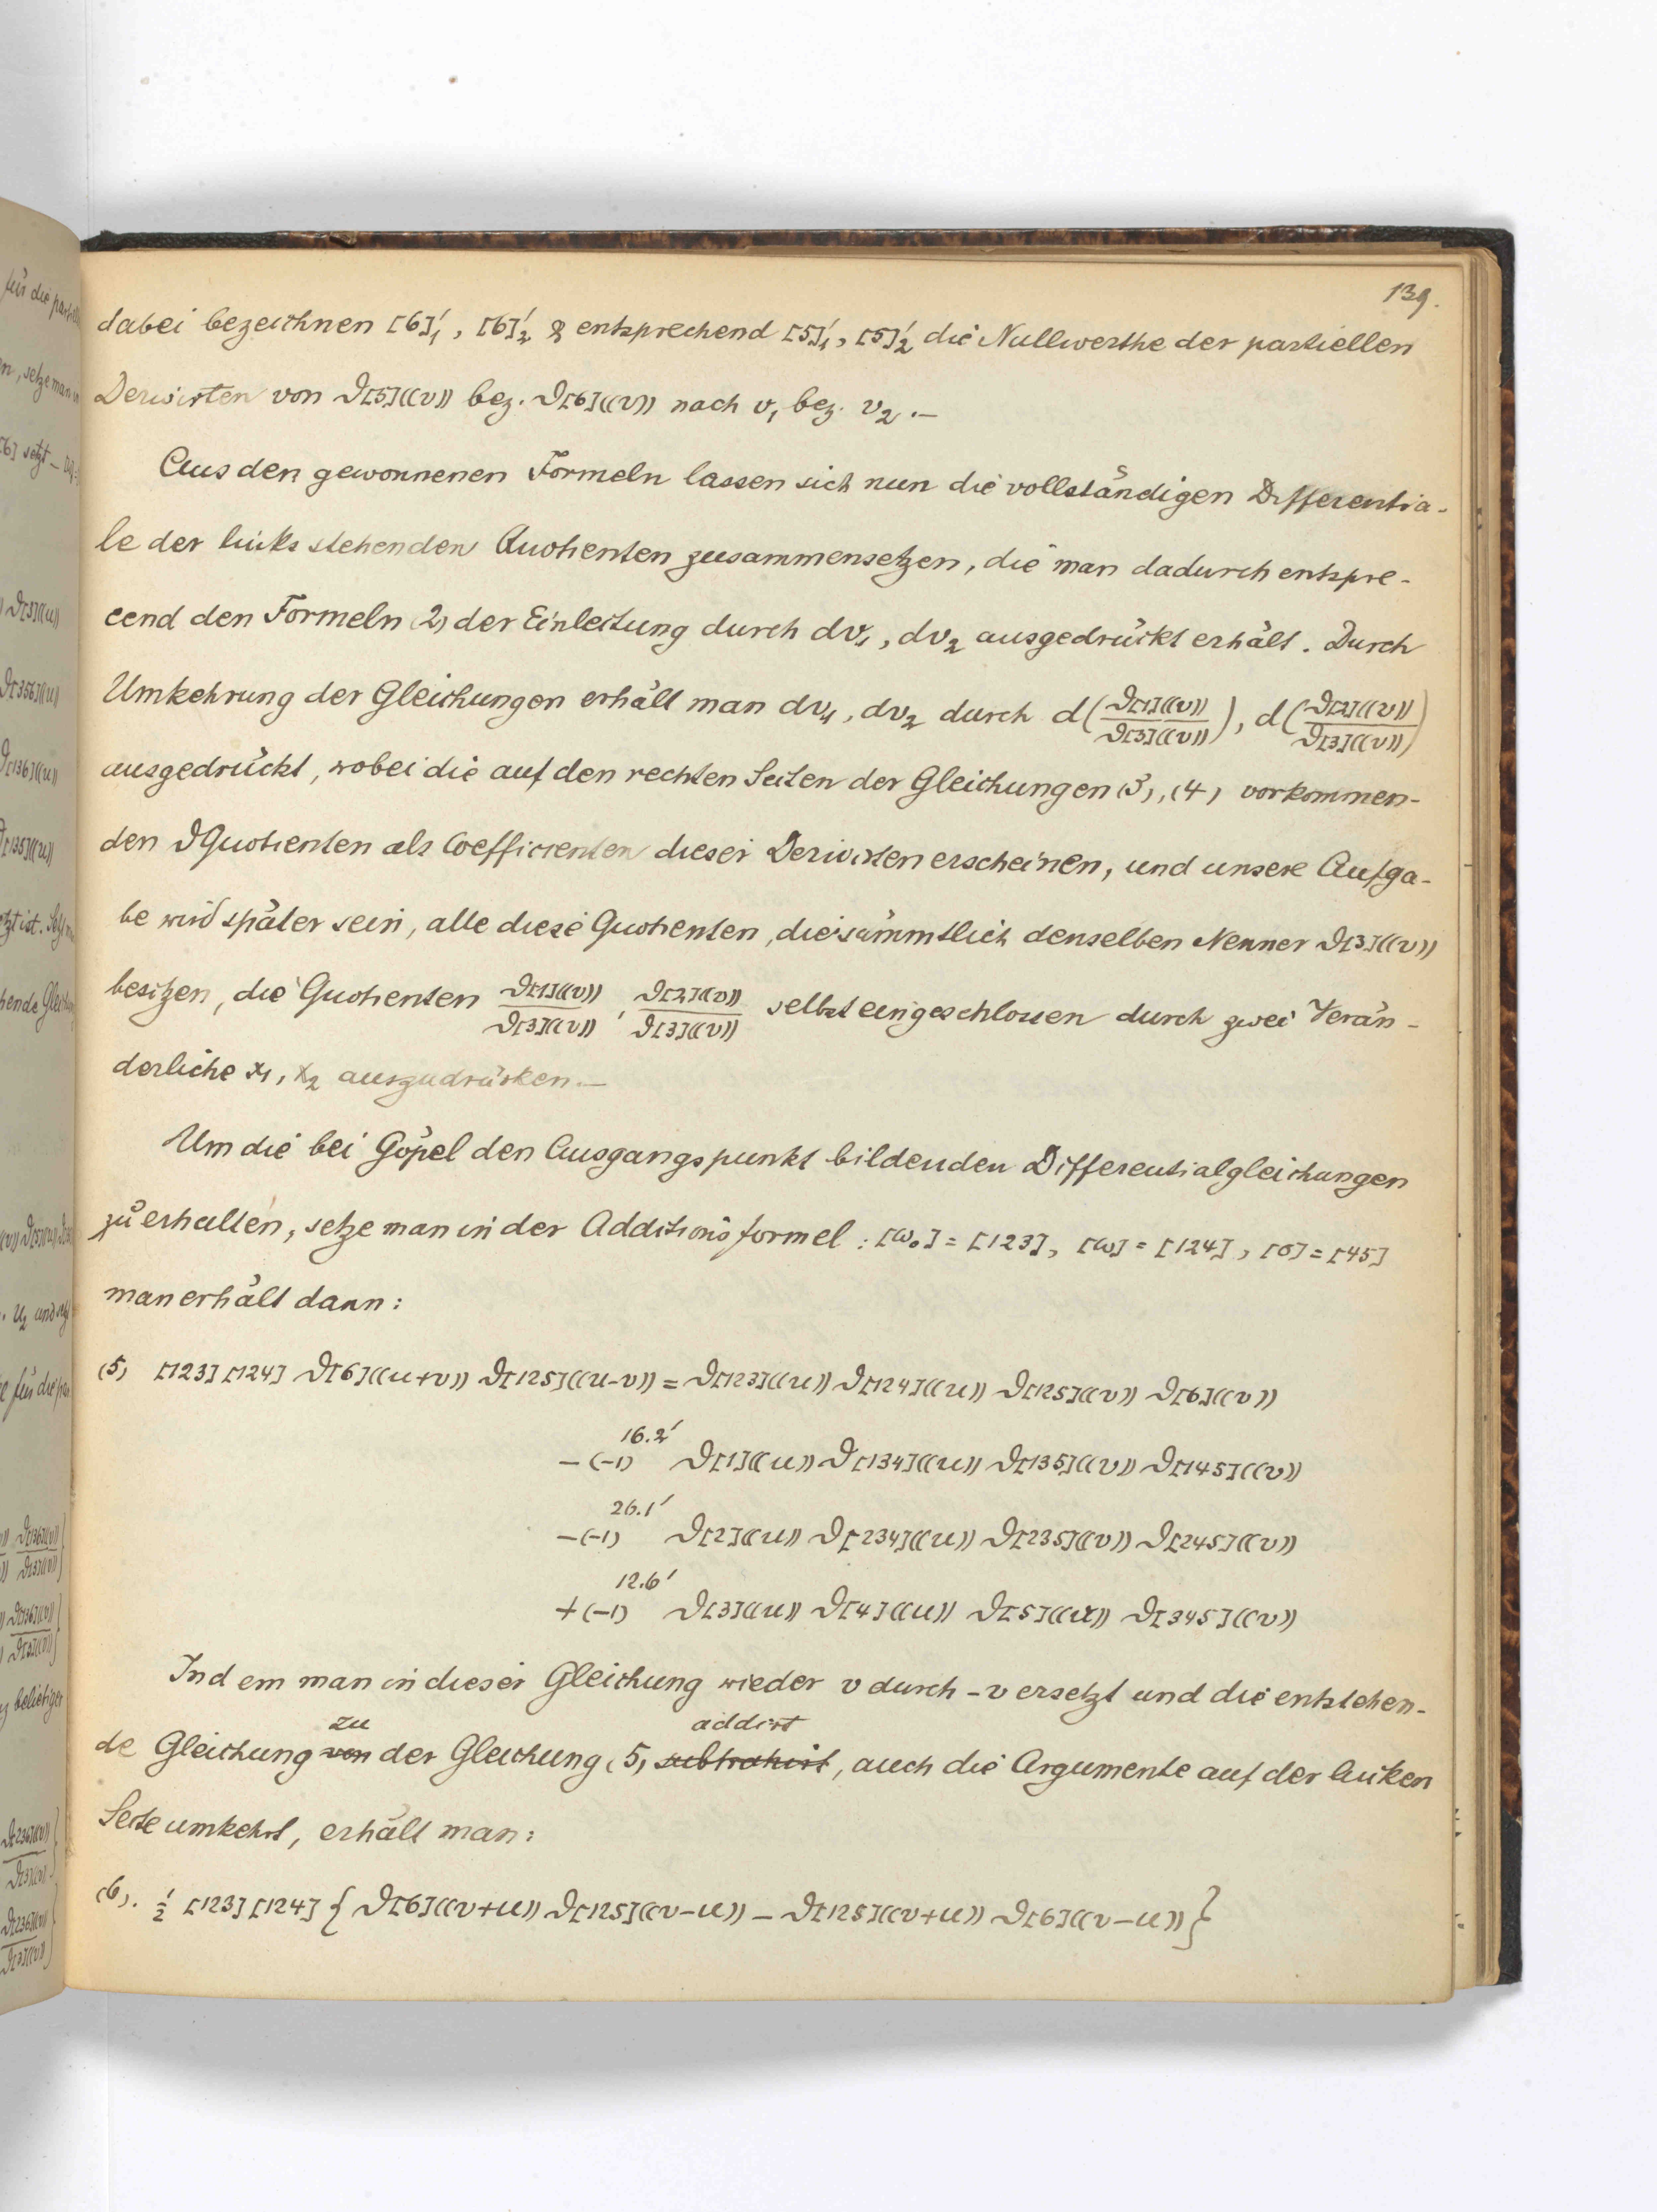 139.
dabei bezeichnen [6]'₁, [6]'₂ & entsprechend [5]'₁, [5]'₂ die Nullwerthe der partiellen
Derivirten von ϑ[5]((v)) bez. ϑ[6]((v)) nach v₁ bez. v₂.—
Aus den gewonnenen Formeln lassen sich nun die vollständigen Differentia-
le der links stehenden Quotienten zusammensetzen, die man dadurch entspre-
cend den Formeln (2) der Einleitung durch dv₁, dv₂ ausgedrückt erhält. Durch
Umkehrung der Gleichungen erhält man dv₁, dv₂ durch d(ϑ[1]((v))/ϑ[3]((v))), d(ϑ[2]((v))/ϑ[3]((v)))
ausgedrückt, wobei die auf den rechten Seiten der Gleichungen (3), (4) vorkommen-
den ϑQuotienten als Coefficienten dieser Derivirten erscheinen, und unsere Aufga-
be wird später sein, alle diese Quotienten, die sämmtlich denselben Nenner ϑ[3]((v))
besitzen, die Quotienten ϑ[1]((v))/ϑ[3]((v)), ϑ[2]((v))/ϑ[3]((v)) selbst eingeschlossen durch zwei Verän-
derliche x₁, x₂ auszudrücken.—
Um die bei Göpel den Ausgangspunkt bildenden Differentialgleichungen
zu erhalten, setze man in der Additionsformel: [ω₀] = [123], [ω] = [124], [σ] = [45]
man erhält dann:
(5) [123] [124] ϑ[6]((u+v)) ϑ[125]((u-v)) = ϑ[123]((u)) ϑ[124]((u)) ϑ[125]((v)) ϑ[6]((v))
-(-1)^{16.2'} ϑ[1]((u)) ϑ[134]((u)) ϑ[135]((v)) ϑ[145]((v))
-(-1)^{26.1'} ϑ[2]((u)) ϑ[234]((u)) ϑ[235]((v)) ϑ[245]((v))
+(-1)^{12.6'} ϑ[3]((u)) ϑ[4]((u)) ϑ[5]((v)) ϑ[345]((v))
Indem man in dieser Gleichung wieder v durch -v ersetzt und die entstehen-
zu addirt
de Gleichung von der Gleichung (5) subtrahirt, auch die Argumente auf der linken
Seite umkehrt, erhält man:
(6). ½ [123] [124] { ϑ[6]((v+u)) ϑ[125]((v-u)) - ϑ[125]((v+u)) ϑ[6]((v-u)) }